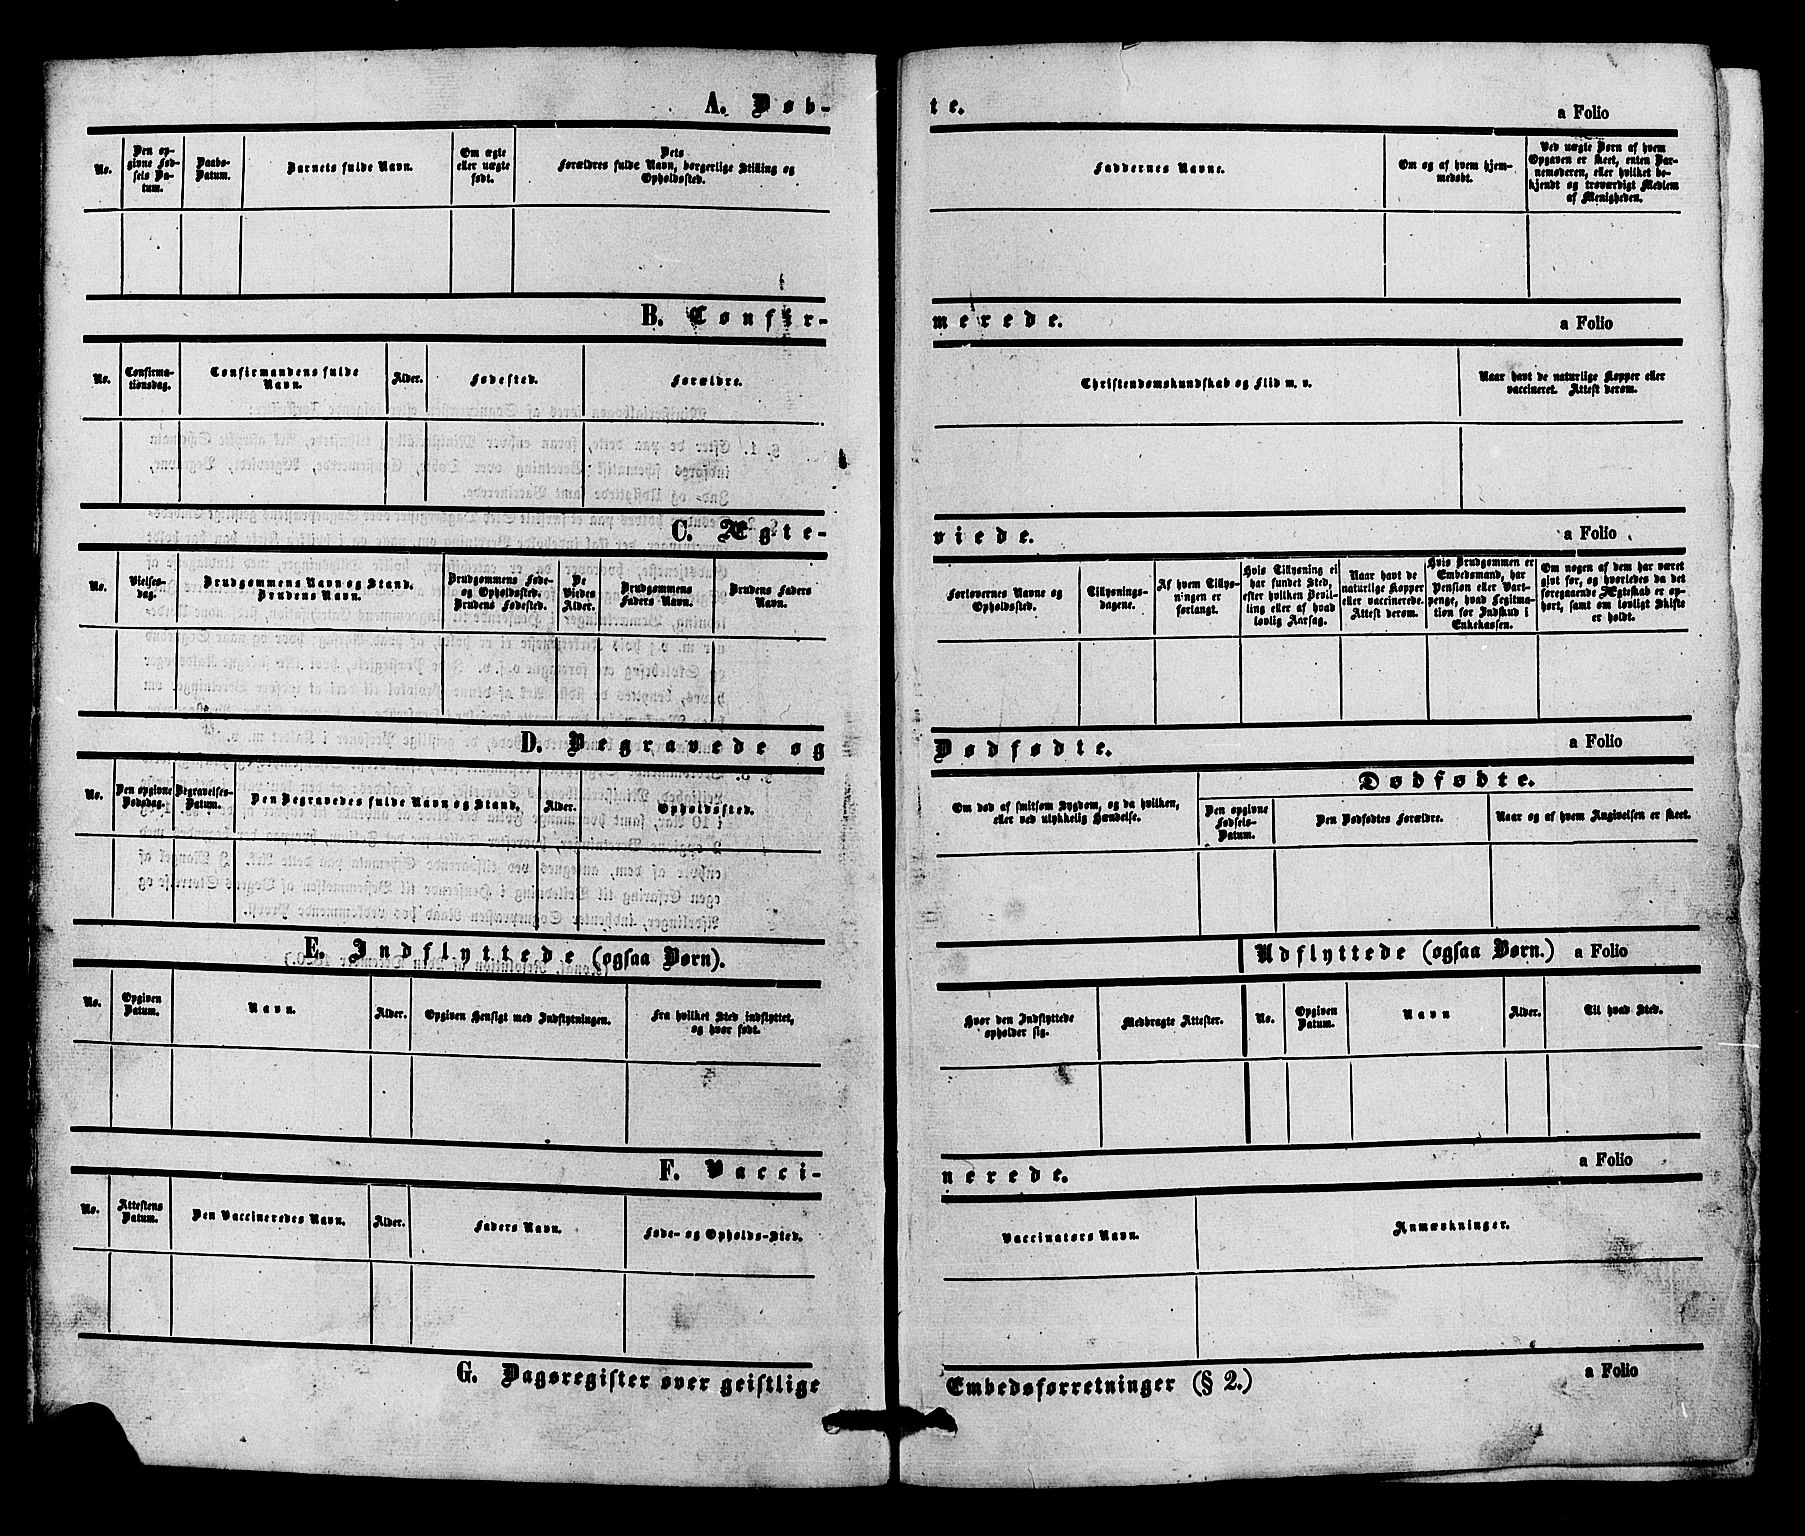 A. Døb-
te.
a Folio
No.
Den op-
givne Fød-
sels Da-
tum.
Daabs-
Datum.
Barnets fulde Navn.
Om ægte
eller uægte
født.
Dets
Forældres fulde Navn, borgerlige Stilling og
Opholdssted.
Faddernes Navne.
Om og af hvem hjem-
medøbt.
Ved uægte Børn af hvem
Opgaven er skeet, enten Bar-
nemoderen, eller hvilket be-
kjendt og troværdigt Medlem
af Menigheden.
B. Confir-
merede.
a Folio
No.
Confirma-
tionsdag.
Confirmandens fulde
Navn.
Alder.
Fødested.
Forældre.
Christendomskundskab og Flid m. v.
Naar havt de naturlige Kopper eller
vaccineret. Attest derom.
C. Ægte-
viede.
a Folio
No.
Vielses-
dag.
Brudgommens Navn og Stand.
Brudens Navn.
Brudgommens Føde-
og Opholdssted.
Brudens Fødested.
De
Viedes
Alder.
Brudgommens
Faders Navn.
Brudens Faders
Navn.
Forlovernes Navne og
Opholdssted.
Tillysnings-
dagene.
Af hvem Tillys-
ningen er
forlangt.
Hvis Tillysning ei
har fundet Sted,
efter hvilken Bevil-
ling eller af hvad
lovlig Aarsag.
Naar havt de
naturlige Kopper
eller vaccinerede.
Attest derom.
Hvis Brudgommen er
Embedsmand, har
Pension eller Vart-
penge, hvad Legitima-
tion for Indskud i
Enkekassen.
Om nogen af dem har været
givt før, og hvorledes da det
foregaaende Ægteskab er op-
hørt, samt om lovligt Skifte
er holdt.
D. Begravede og
Dødfødte.
a Folio
No.
Den opgivne
Dødsdag.
Begravelses-
Datum.
Den Begravedes fulde Navn og Stand.
Alder.
Opholdssted.
Om død af smitsom Sygdom, og da hvilken,
eller ved ulykkelig Hændelse.
Dødfødte.
Den opgivne
Fødsels-
Datum.
Den Dødfødtes Forældre.
Naar og af hvem Angivelsen er skeet.
E. Indflyttede (ogsaa Børn).
Udflyttede (ogsaa Børn.)
a Folio
No.
Opgiven
Datum.
Navn.
Alder.
Opgiven Hensigt med Indflytningen.
Fra hvilket Sted indflyttet,
og hvor født.
Hvor den Indflyttede
opholder sig.
Medbragte Attester.
No.
Opgiven
Datum.
Navn
Alder.
Til hvad Sted.
F. Vacci-
nerede.
a Folio
No.
Attestens
Datum.
Den Vaccineredes Navn.
Alder.
Faders Navn.
Føde- og Opholds-Sted.
Vaccinatørs Navn.
Anmærkninger.
G. Dagsregister over geistlige
Embedsforretninger (§ 2.)
a Folio